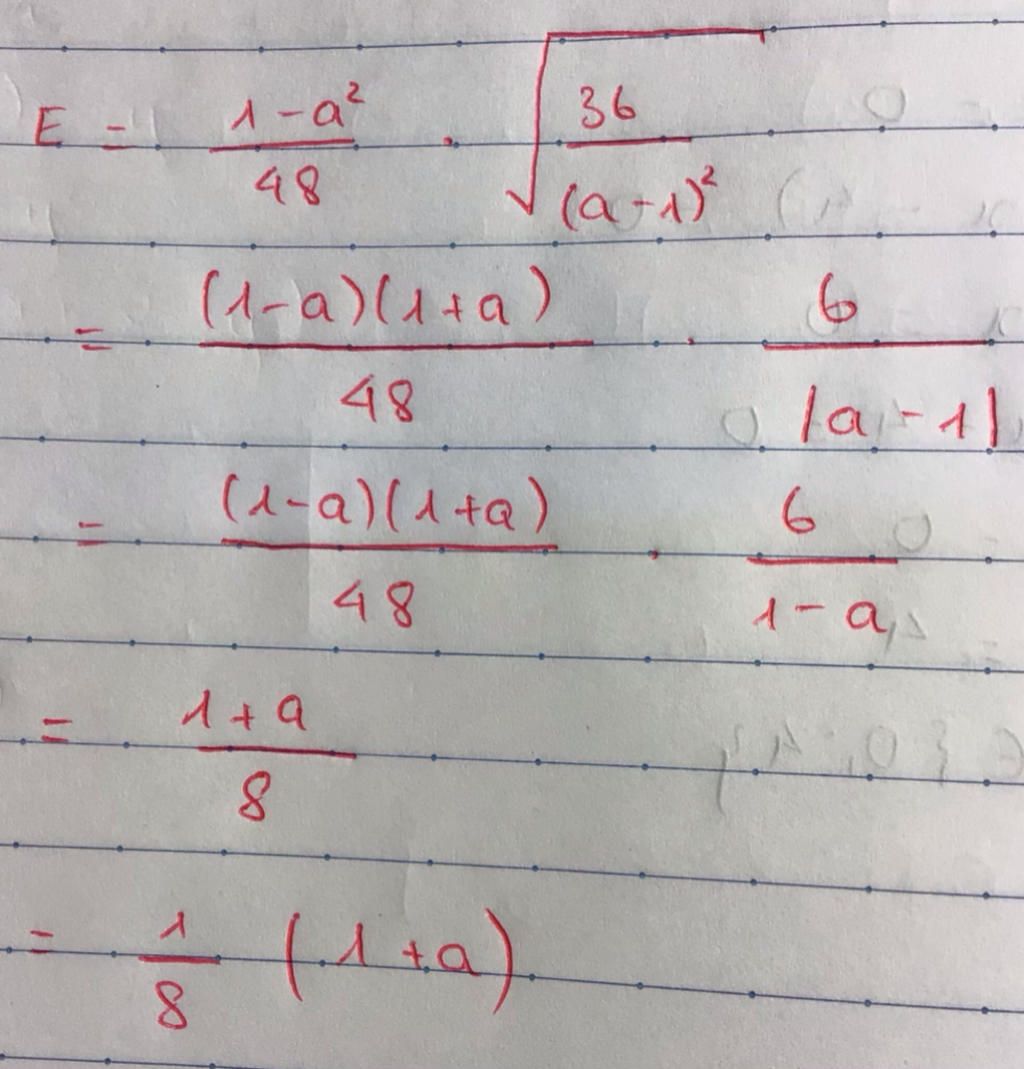 E = \frac{1-a^2}{48} \cdot \sqrt{\frac{36}{(a-1)^2}}
= \frac{(1-a)(1+a)}{48} \cdot \frac{6}{|a-1|}
= \frac{(1-a)(1+a)}{48} \cdot \frac{6}{1-a}
= \frac{1+a}{8}
= \frac{1}{8} (1+a)